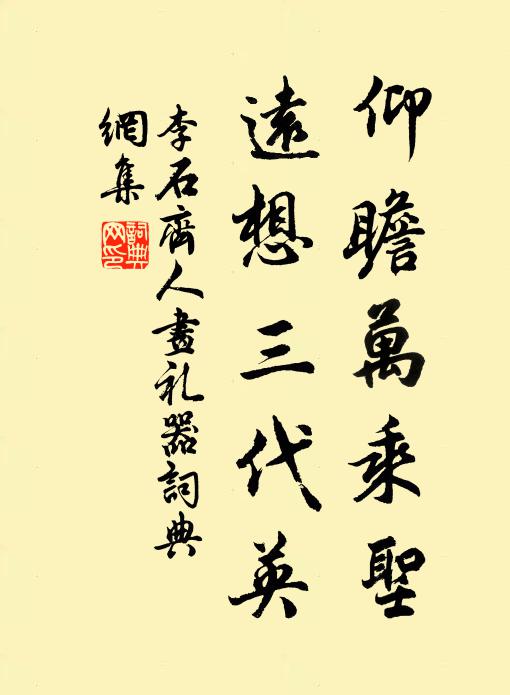 仰瞻萬乘聖
遠想三代英
李石齊人畫礼器詞典
網集
詞典
网印